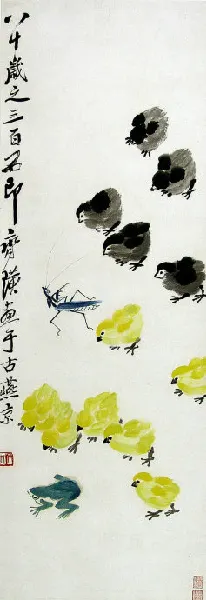 八十歲之三百石印齊璜画于古燕京